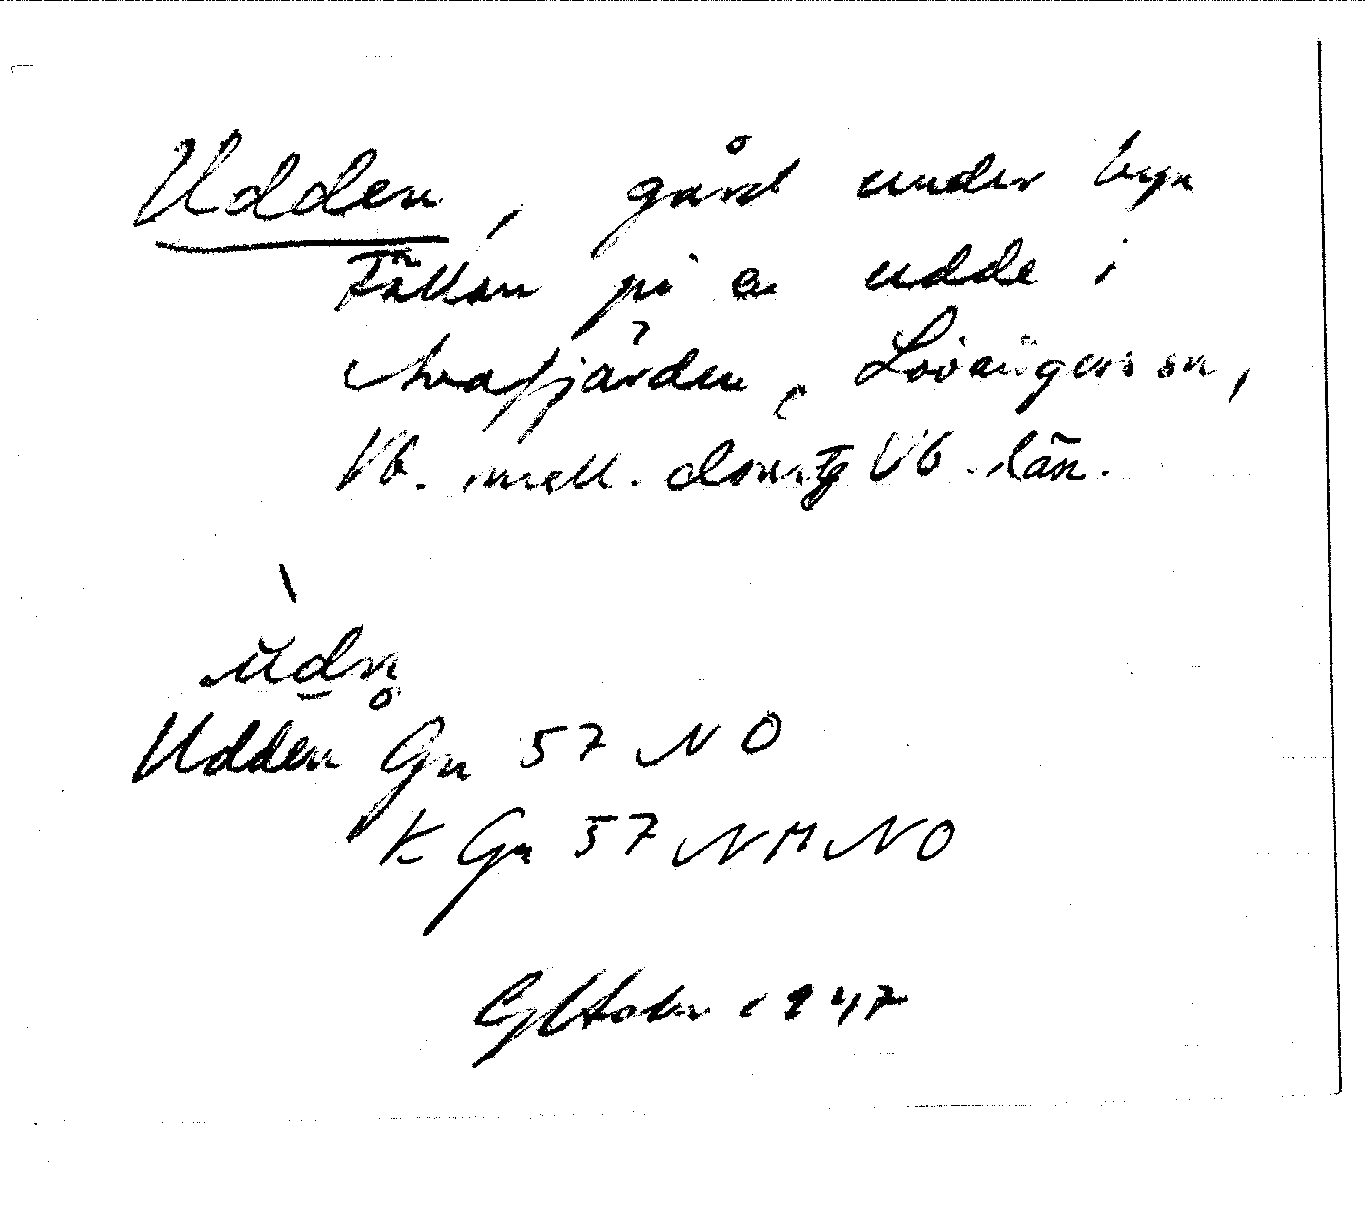 Udden, gård under byn
Fällan på en udde i
Avafjärden, Lövångers sn,
Vb. mell. domsg Vb. län.
ùdn
Udden Gn 57 NO
K Gn 57 NM NO
1947